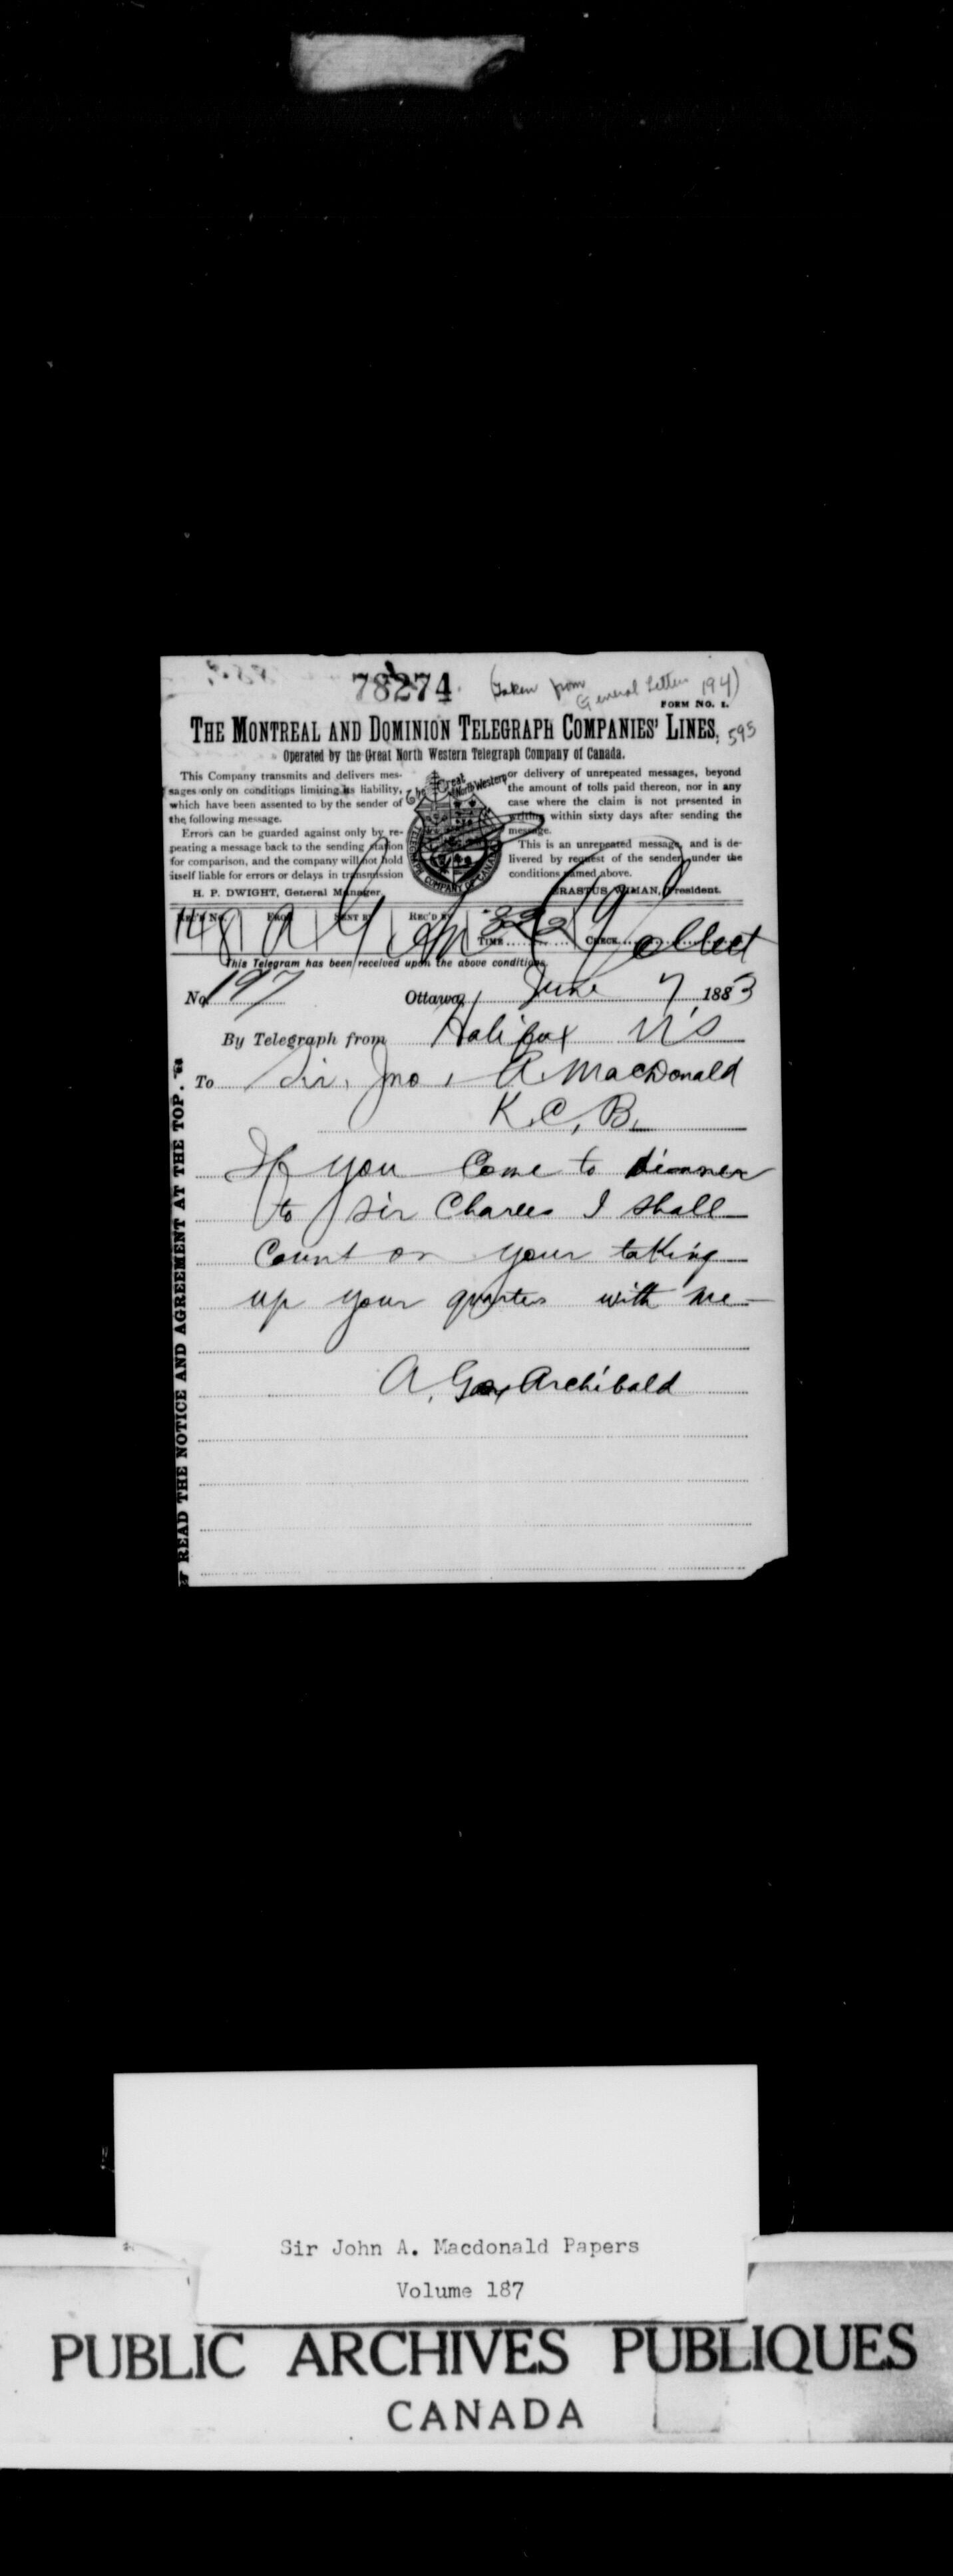 78274
(Taken from General Letters 194)
FORM NO. 1.
THE MONTREAL AND DOMINION TELEGRAPH COMPANIES' LINES.
595
Operated by the Great North Western Telegraph Company of Canada.
This Company transmits and delivers mes-
sages only on conditions limiting its liability,
which have been assented to by the sender of
the following message.
Errors can be guarded against only by re-
peating a message back to the sending station
for comparison, and the company will not hold
itself liable for errors or delays in transmission
or delivery of unrepeated messages, beyond
the amount of tolls paid thereon, nor in any
case where the claim is not presented in
writing within sixty days after sending the
message.
This is an unrepeated message, and is de-
livered by request of the sender, under the
conditions named above.
The Great North Western
TELEGRAPH COMPANY OF CANADA
H. P. DWIGHT, General Manager.
ERASTUS WIMAN, President.
REC'D No. FROM SENT BY REC'D BY TIME CHECK
148 Collect
This Telegram has been received upon the above conditions.
No 197 Ottawa, June 7, 1883
By Telegraph from Halifax NS
To Sir, Jno, A. MacDonald
K.C,B,
If you Come to dinner
to Sir Charles I shall
Count on your taking
up your quarters with me—
A. G. Archibald
READ THE NOTICE AND AGREEMENT AT THE TOP.
Sir John A. Macdonald Papers
Volume 187
PUBLIC ARCHIVES PUBLIQUES
CANADA